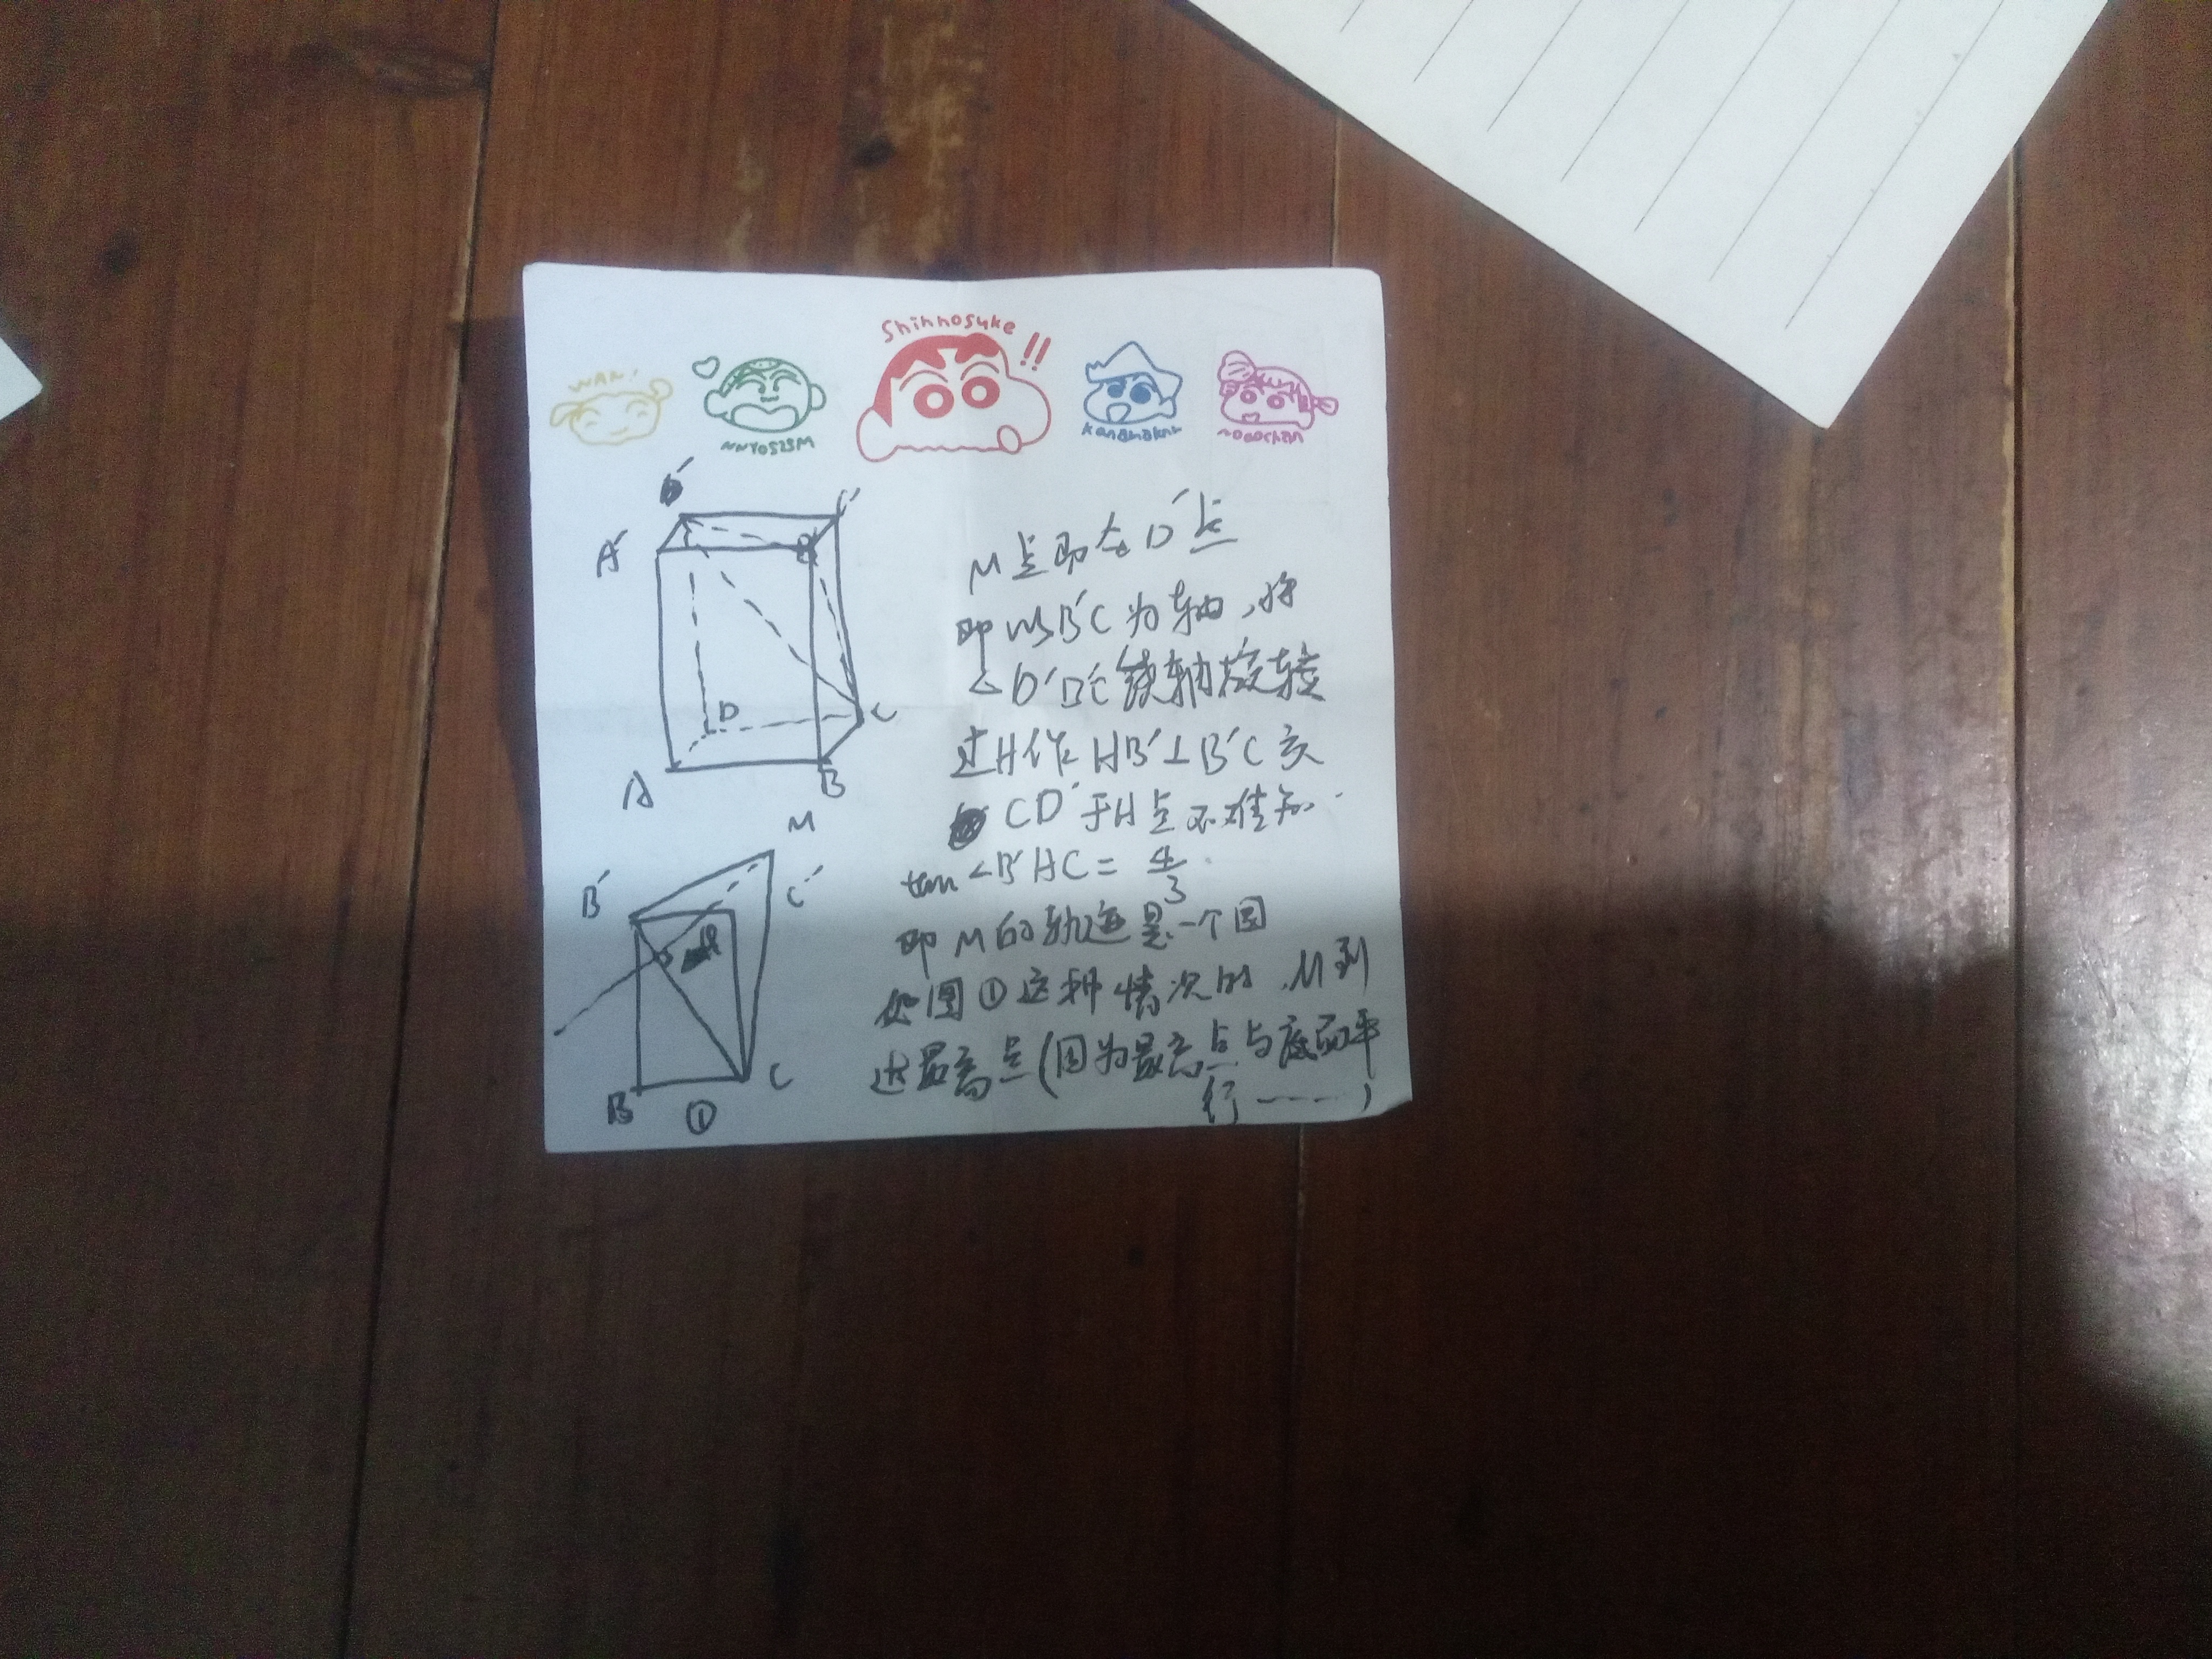 Shinnosuke
!!
WAN!
D'
C'
A'
B'
D
C
A
B
M点即为D'点
即以B'C为轴，将
△D'B'C绕轴旋转
过H作HB'⊥B'C交
CD'于H点不难知
tan∠B'HC=4/3
即M的轨迹是一个圆
如图①这种情况时，M到
达最高点(因为最高点与底面平
行----)
M
B'
C'
B
C
①